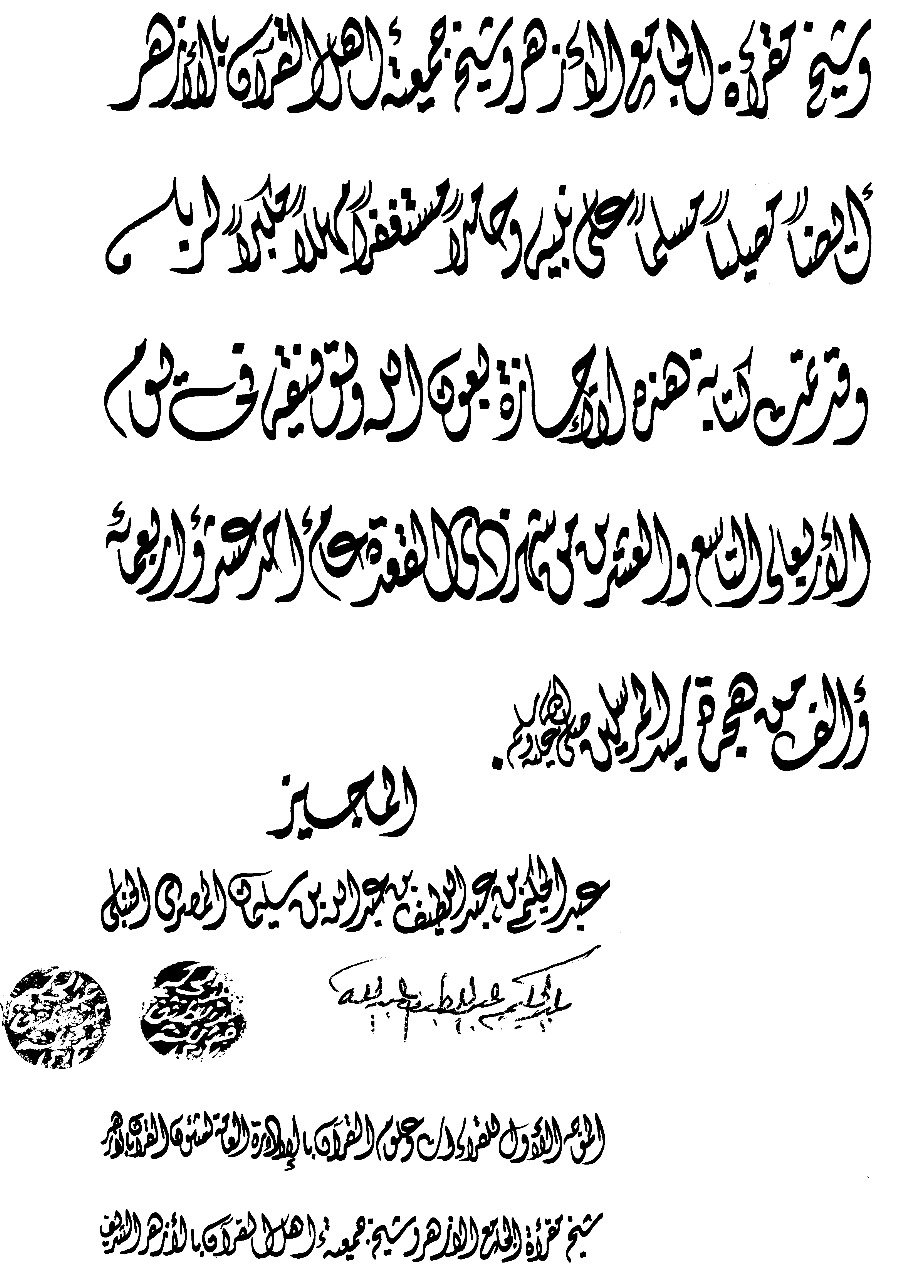 وشيخ مقرأة الجامع الأزهر وشيخ جمعية أهل القرآن بالأزهر
أيضاً مصلياً مسلماً على نبيه وحامداً مستغفراً مهللاً مكبراً لربي
وقد تمت كتابة هذه الإجازة بعون الله وتوفيقه في يوم
الأربعاء التاسع والعشرين من شهر ذي القعدة عام أحد عشر وأربعمائة
وألف من هجرة سيد المرسلين صلى الله عليه وسلم .
المجيز
عبد الحكيم بن عبد اللطيف بن عبد الله بن سليمان المصري الحنبلي
عبد الحكيم عبد اللطيف عبد الله
الموجه الأول للقراءات وعلوم القرآن بالإدارة العامة لشئون القرآن بالأزهر
شيخ مقرأة الجامع الأزهر وشيخ جمعية أهل القرآن بالأزهر الشريف